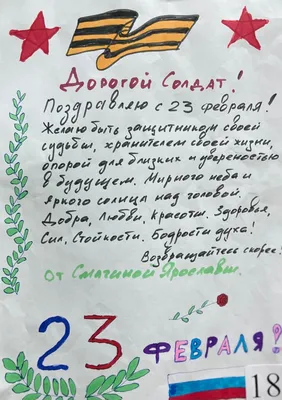 Дорогой Солдат!
Поздравляю с 23 февраля!
Желаю быть защитником своей
судьбы, хранителем своей жизни,
опорой для близких и увереностью
в будущем. Мирного неба и
яркого солнца над головой.
Добра, Любви, Красоты. Здоровья,
Сил, Стойкости. Бодрости духа!
Возвращайтесь скорее!
От Смагиной Ярославы.
23 ФЕВРАЛЯ!
18